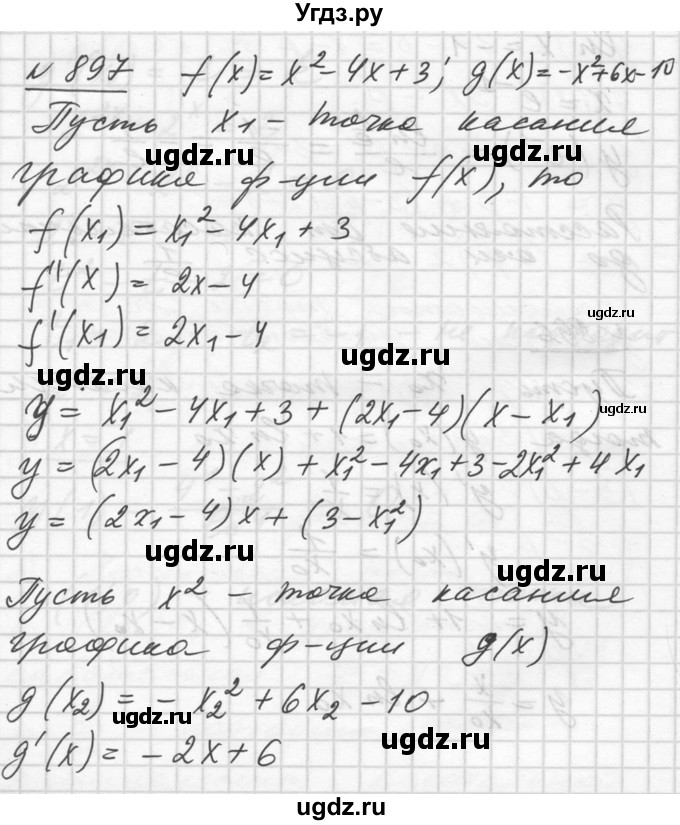 Угдз.ру
N 897 f(x)=x²-4x+3; g(x)=-x²+6x-10
Пусть x₁ - точка касания
ugdz.ru ugdz.ru
графика ф-ции f(x), то
f(x₁) = x₁² - 4x₁ + 3
f'(x) = 2x - 4
ugdz.ru
f'(x₁) = 2x₁ - 4
ugdz.ru
ugdz.ru
y = x₁² - 4x₁ + 3 + (2x₁ - 4)(x - x₁)
ugdz.ru
y = (2x₁ - 4)(x) + x₁² - 4x₁ + 3 - 2x₁² + 4x₁
y = (2x₁ - 4)x + (3 - x₁²)
ugdz.ru ugdz.ru
Пусть x² - точка касания
графика ф-ции g(x)
g(x₂) = - x₂² + 6x₂ - 10
ugdz.ru
g'(x) = - 2x + 6
ugdz.ru
ugdz.ru